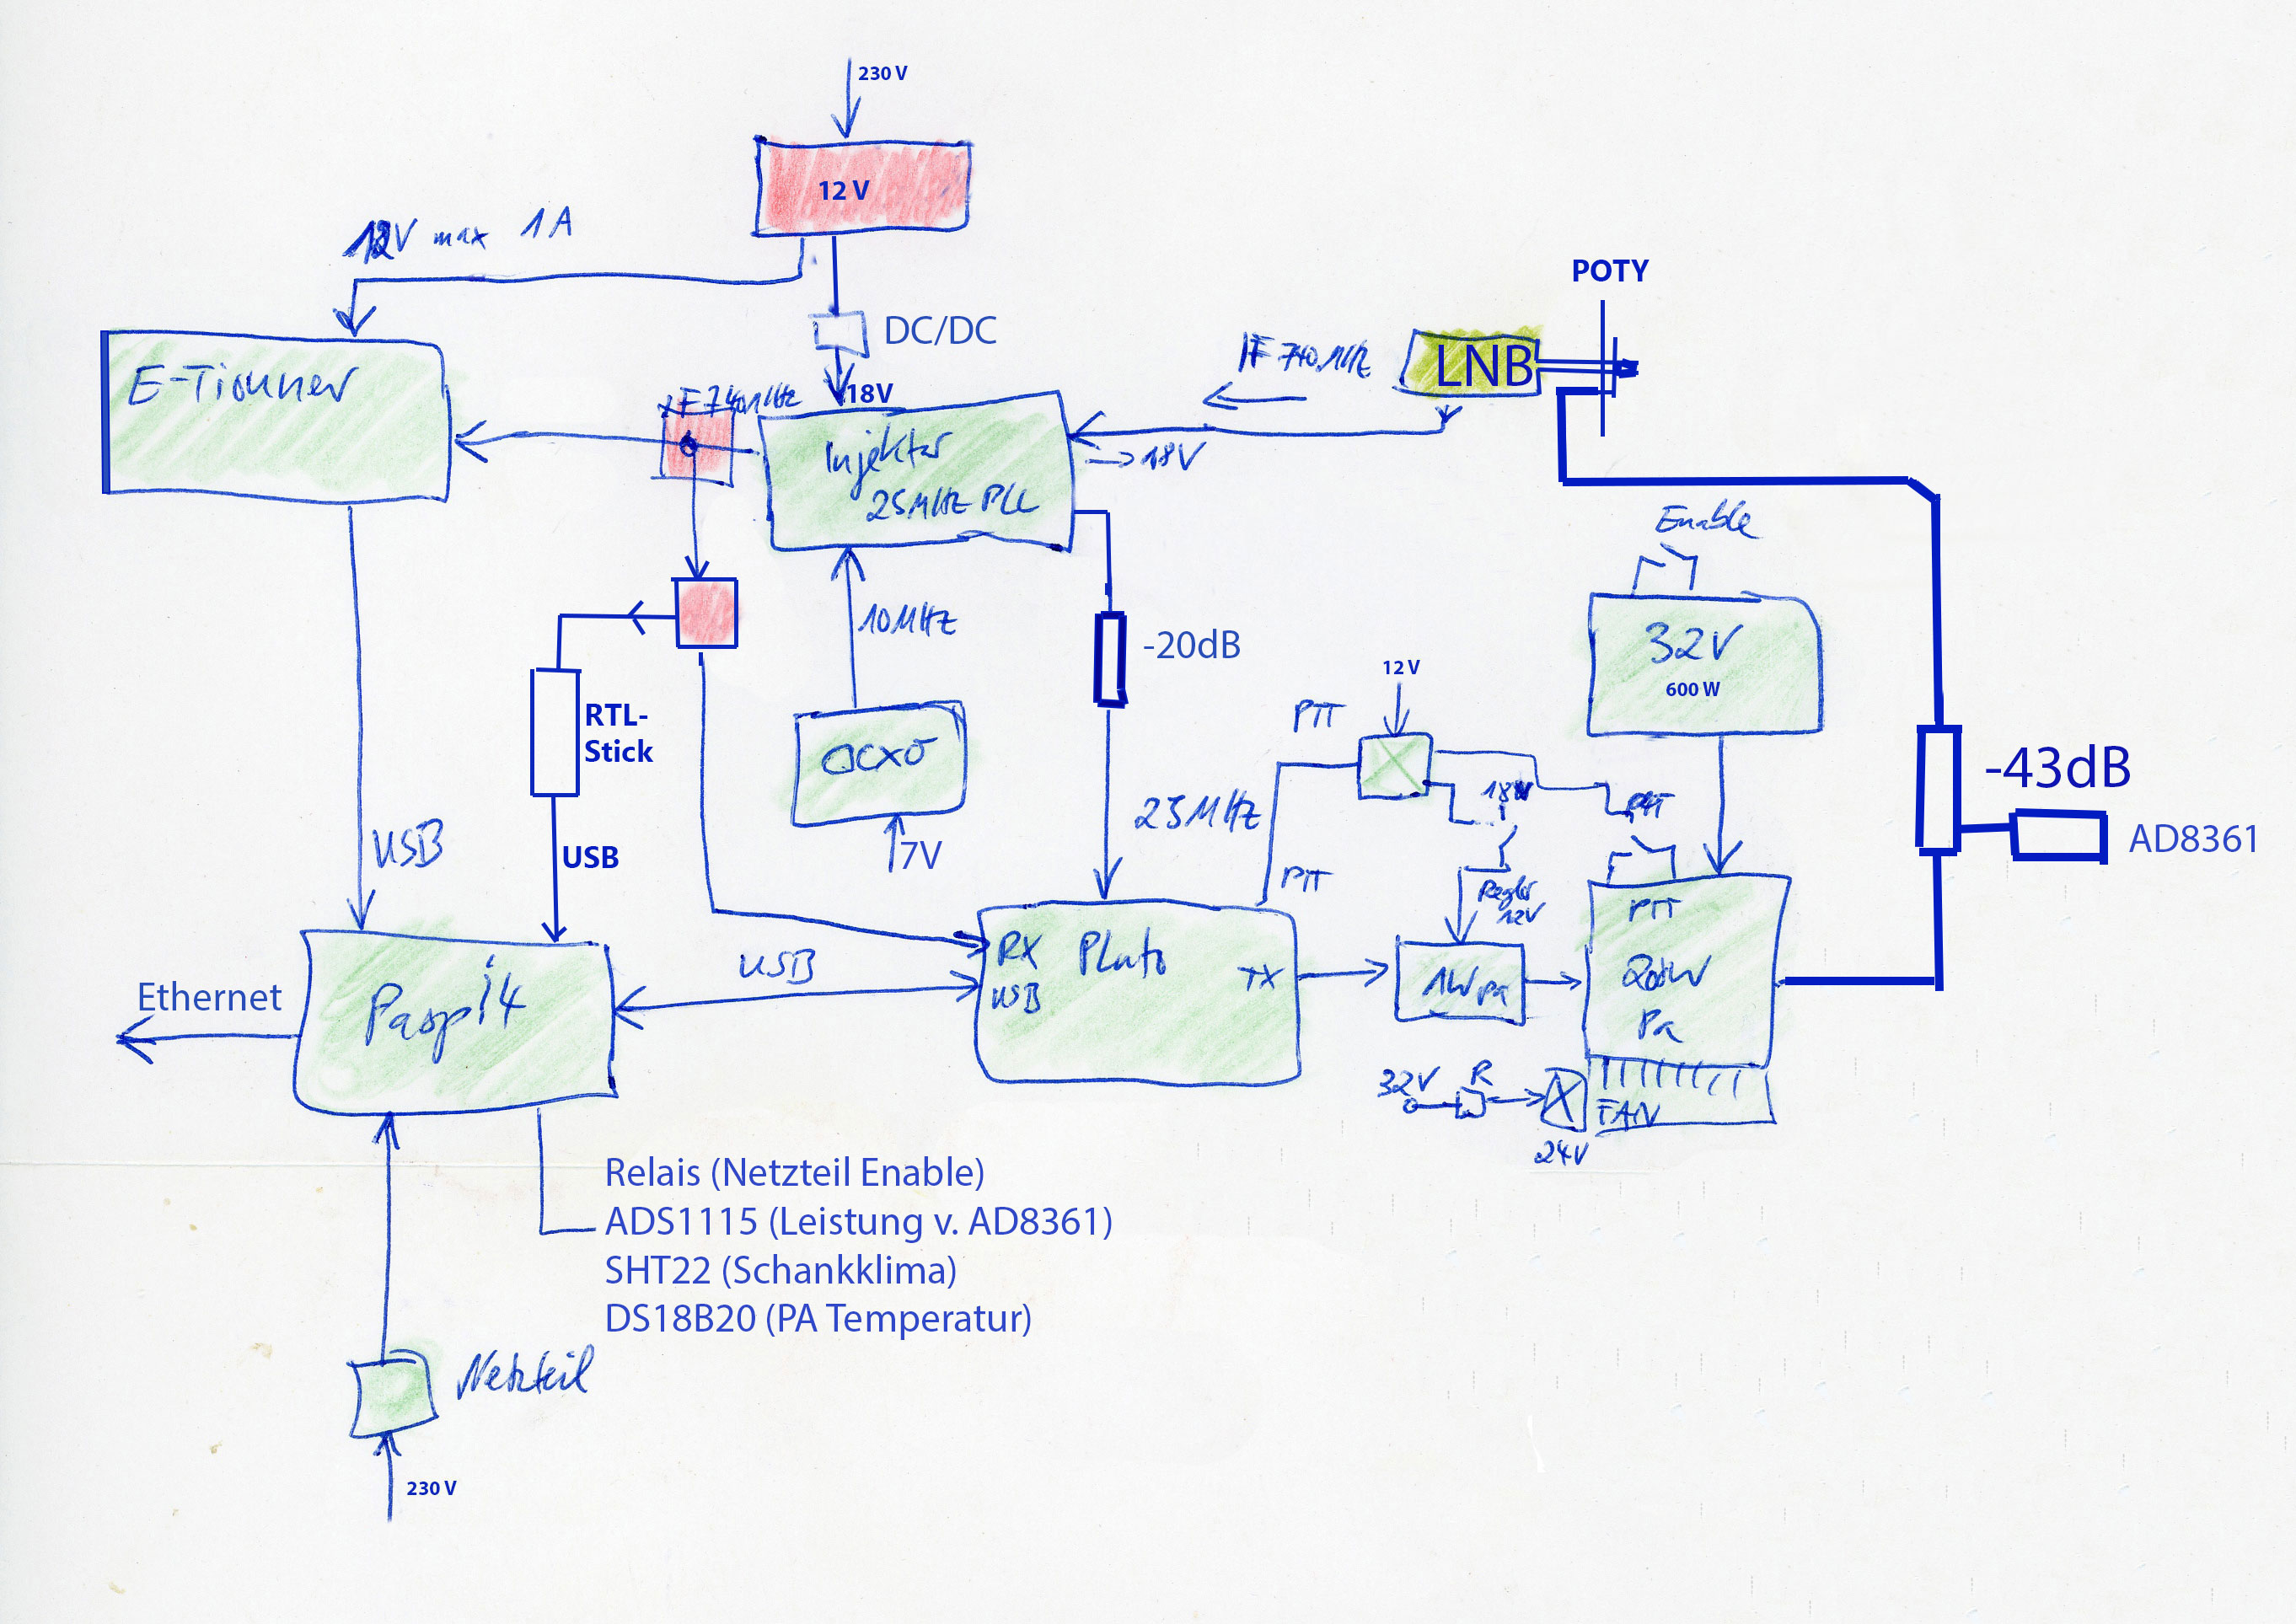 230 V
12 V
12V max 1A
DC/DC
POTY
IF 740 MHz
LNB
E-Tiouner
IF 740 MHz
18V
Injektor
25MHz PLL
18V
Enable
10MHz
-20dB
32V
600 W
12 V
RTL-
Stick
PTT
OCXO
-43dB
18V
PTT
25MHz
USB
USB
7V
AD8361
PTT
Regler
12V
PTT
RX
Pluto
TX
USB
USB
1W PA
200W
Pa
Ethernet
Raspi4
32V
R
FAN
24V
Relais (Netzteil Enable)
ADS1115 (Leistung v. AD8361)
SHT22 (Schankklima)
DS18B20 (PA Temperatur)
Netzteil
230 V